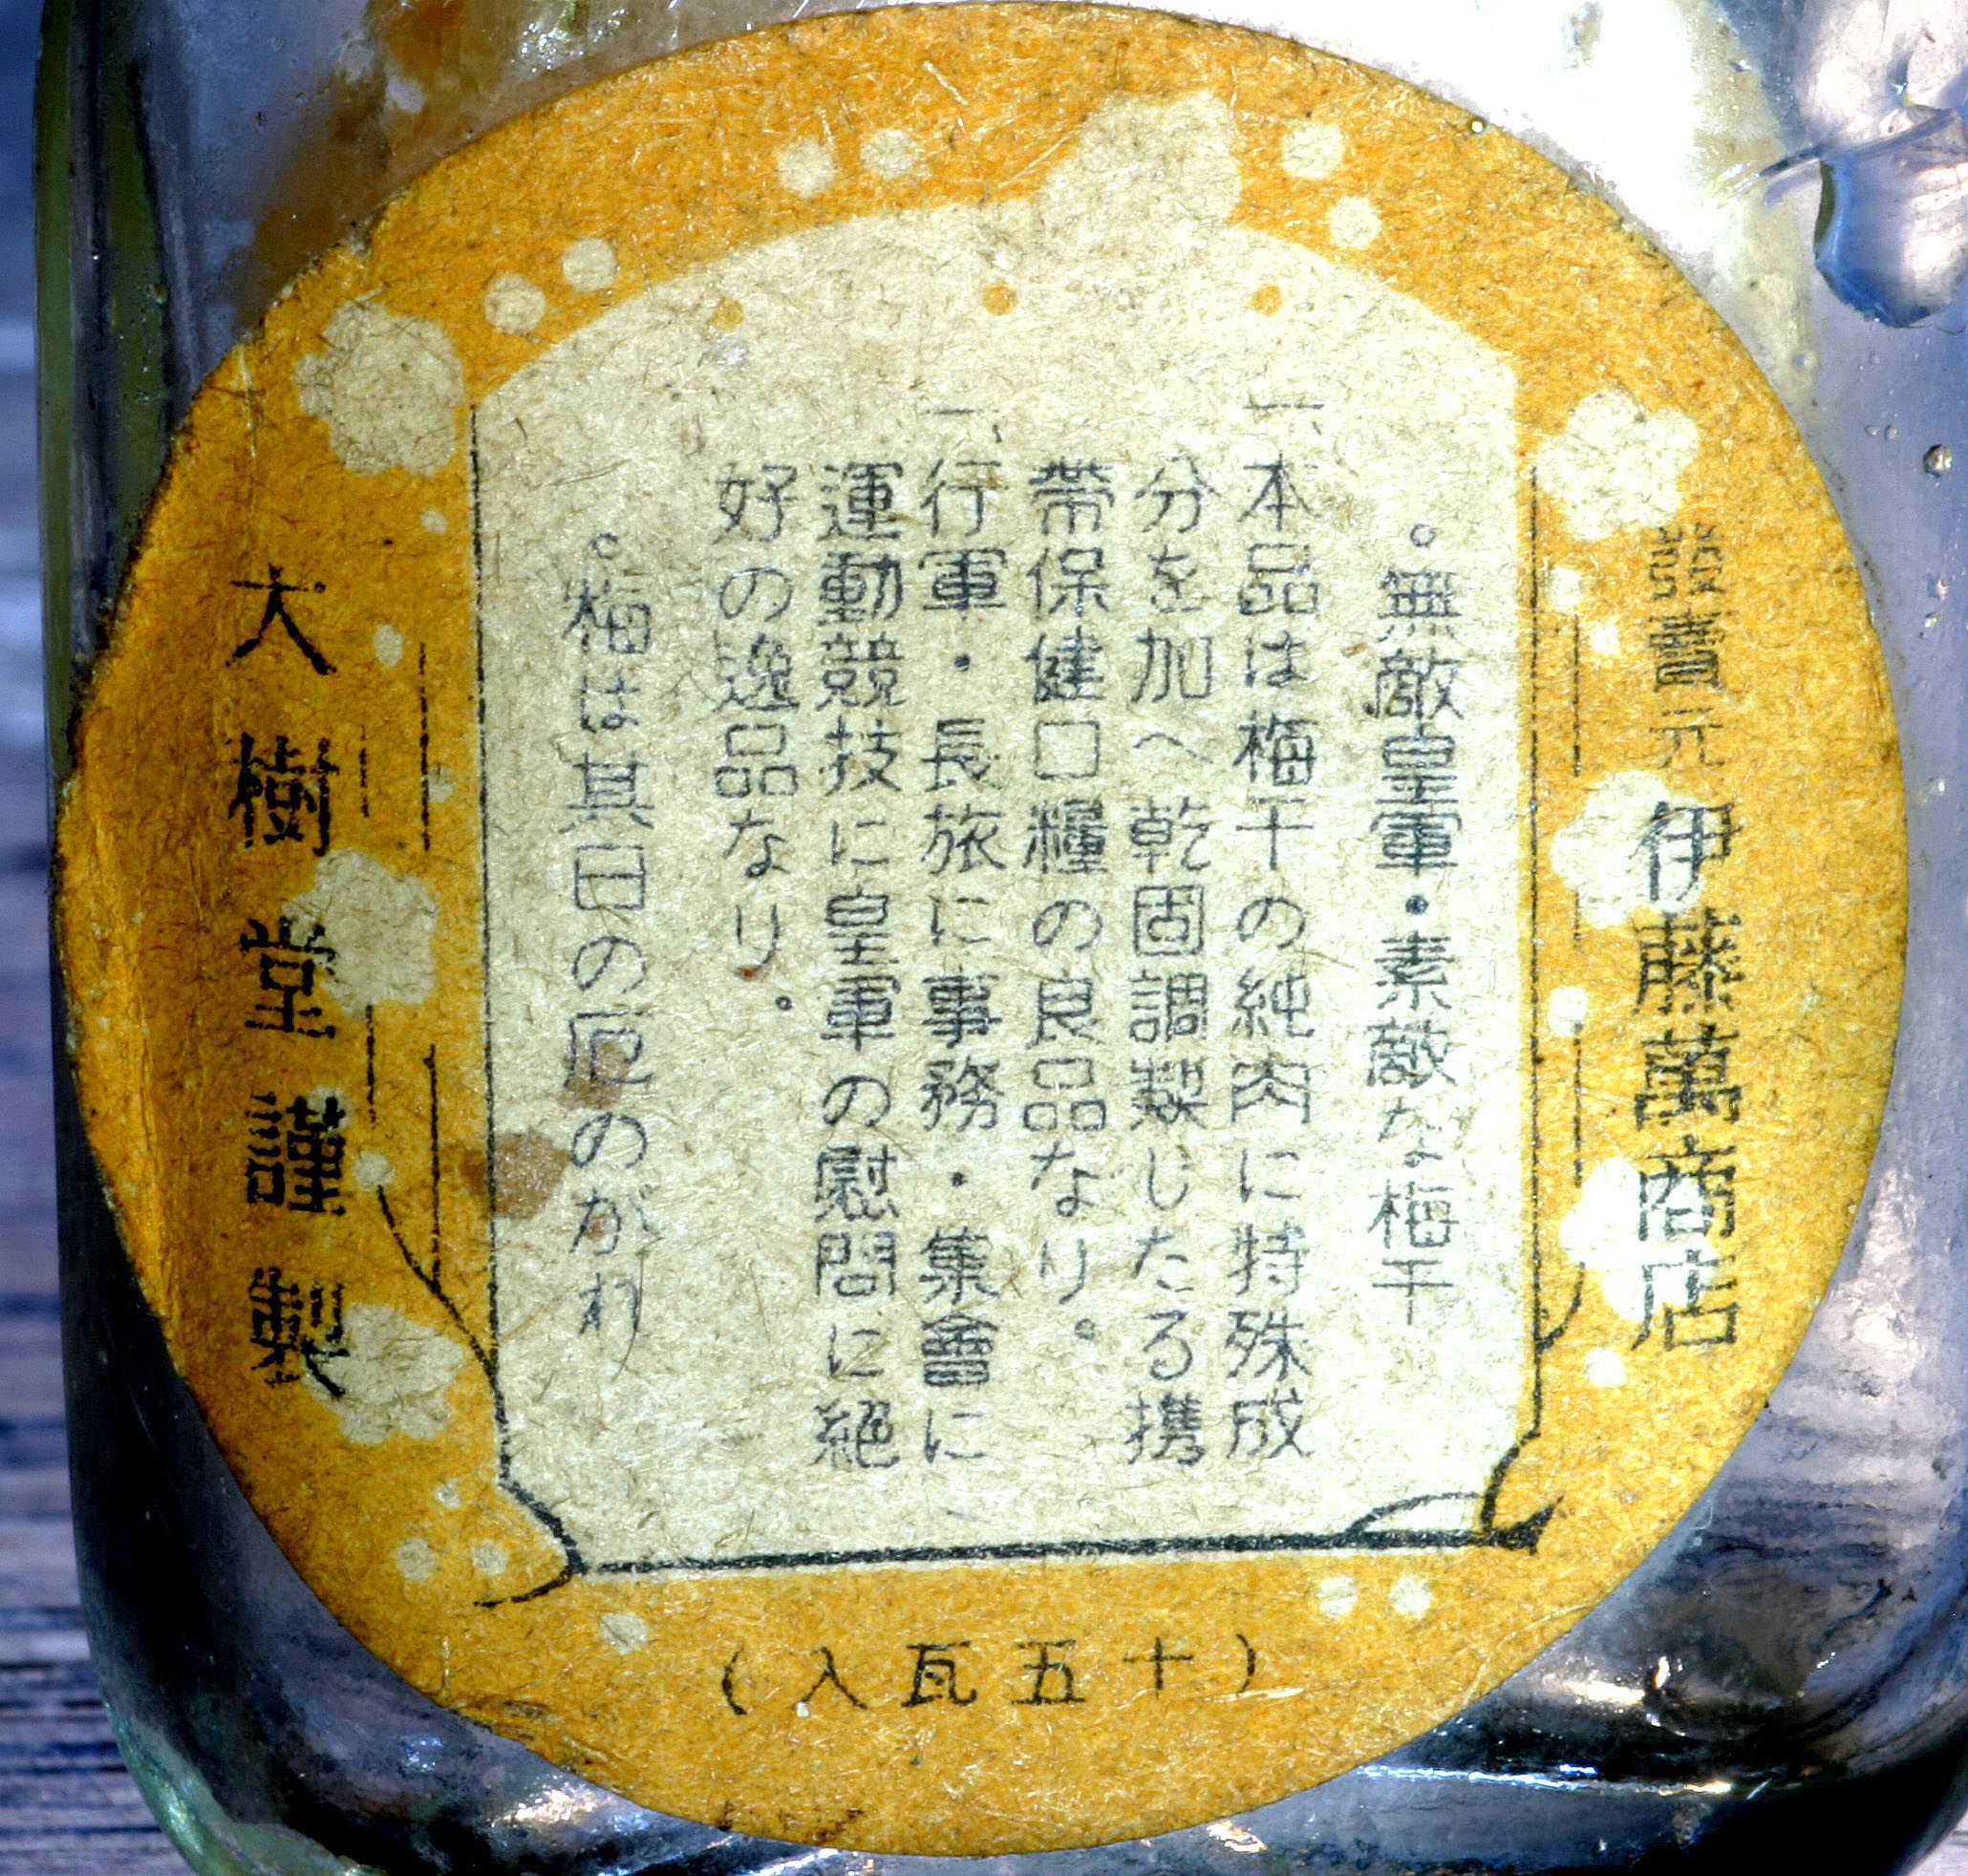 發賣元 伊藤萬商店
。無敵皇軍・素敵な梅干
一、本品は梅干の純肉に特殊成
分を加へ乾固調製したる携
帶保健口糧の良品なり。
一、行軍・長旅に事務・集會に
運動競技に皇軍の慰問に絶
好の逸品なり。
。梅は其日の厄のがれ
大樹堂謹製
（入瓦五十）